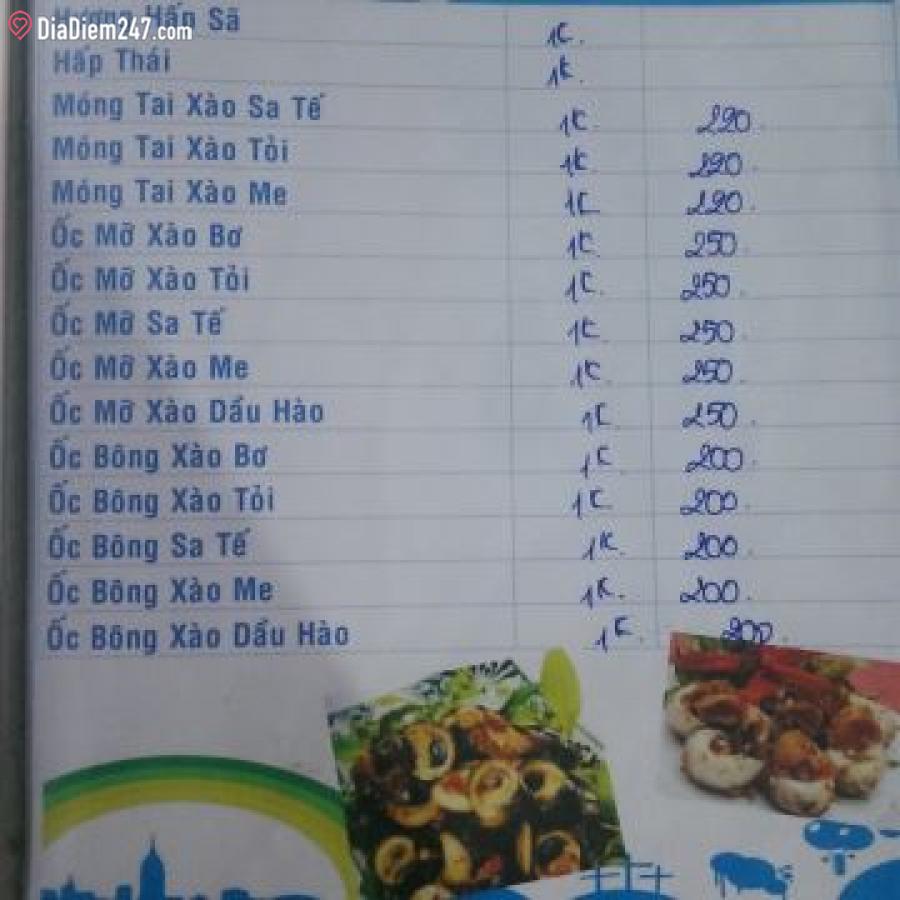 DiaDiem247.com
Hấp Sã 1K.
Hấp Thái 1K.
Móng Tai Xào Sa Tế 1K. 220.
Móng Tai Xào Tỏi 1K. 220.
Móng Tai Xào Me 1K 220.
Ốc Mỡ Xào Bơ 1K. 250.
Ốc Mỡ Xào Tỏi 1K. 250.
Ốc Mỡ Sa Tế 1K. 250.
Ốc Mỡ Xào Me 1K. 250.
Ốc Mỡ Xào Dầu Hào 1K. 250.
Ốc Bông Xào Bơ 1K. 200.
Ốc Bông Xào Tỏi 1K. 200.
Ốc Bông Sa Tế 1K. 200.
Ốc Bông Xào Me 1K. 200.
Ốc Bông Xào Dầu Hào 1K. 200.